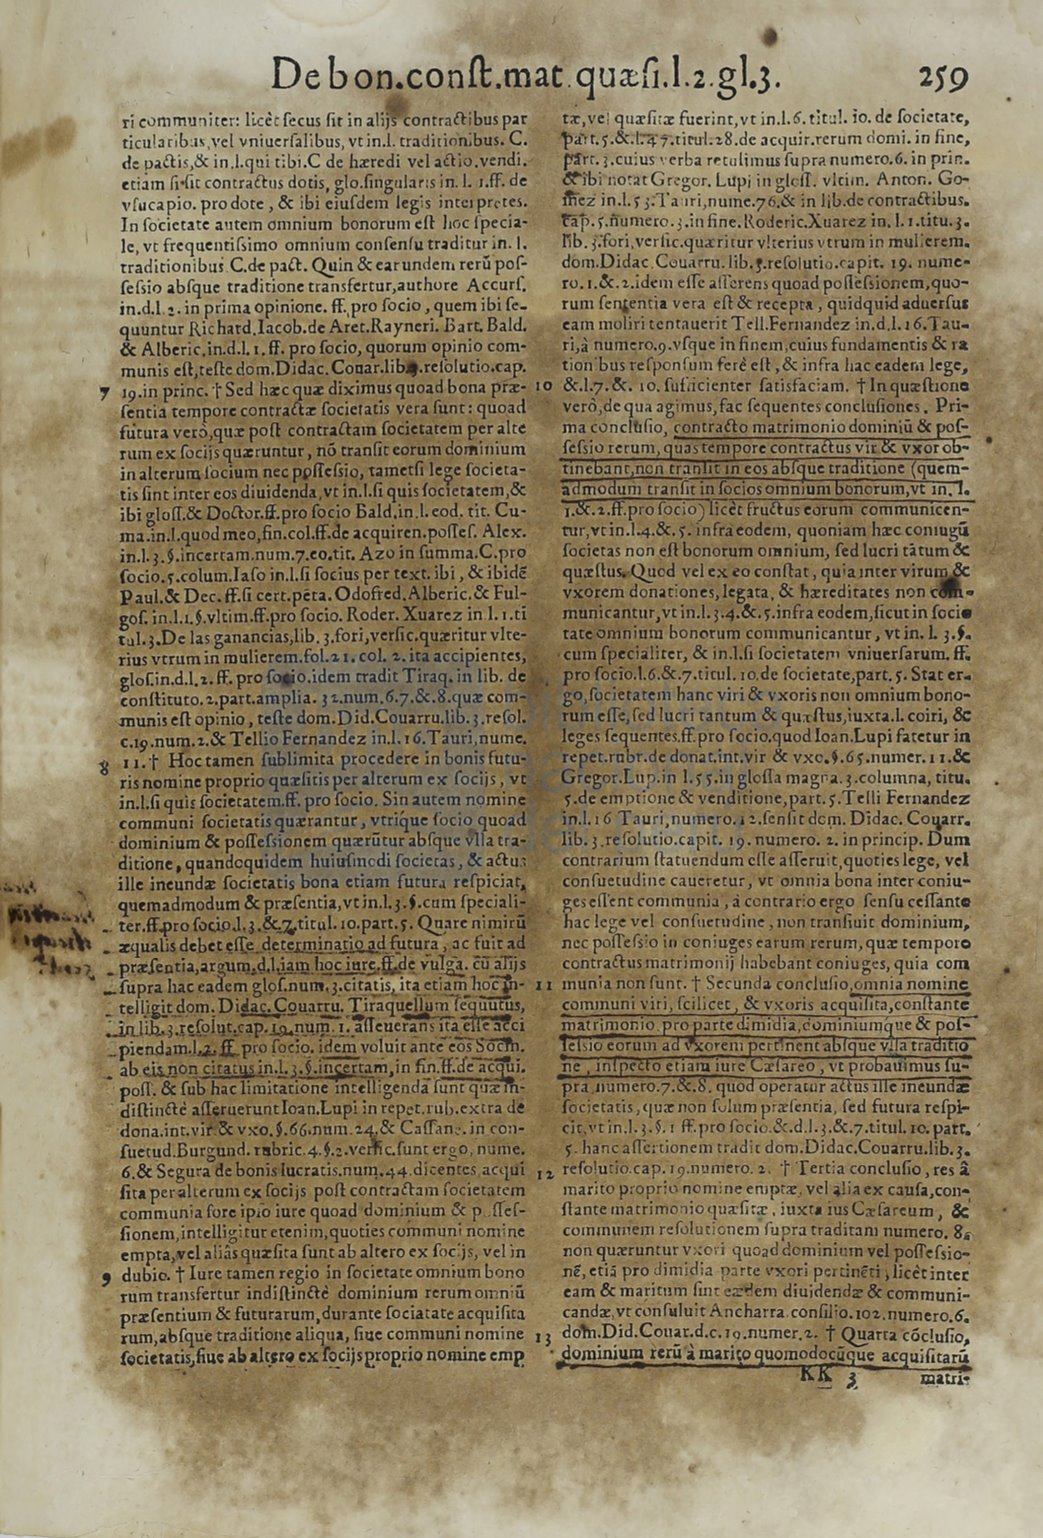 De bon.conſt.mat.quæſi.l.2.gl.3. 259
ri communiter: licèt ſecus ſit in alijs contractibus par
ticularibus, vel vniuerſalibus, vt in.l. traditionibus. C.
de pactis, & in.l.qui tibi.C de hæredi vel actio.vendi.
etiam ſi ſit contractus dotis, glo.ſingularis in. l. 1.ff. de
vſucapio. pro dote, & ibi eiuſdem legis interpretes.
In ſocietate autem omnium bonorum eſt hoc ſpecia-
le, vt frequentiſsimo omnium conſenſu traditur in. l.
traditionibus C.de pact. Quin & earundem rerū poſ-
ſeſsio abſque traditione transfertur, authore Accurſ.
in.d.l 2. in prima opinione. ff. pro ſocio, quem ibi ſe-
quuntur Richard.Iacob.de Aret.Rayneri. Bart. Bald.
& Alberic.in.d.l. 1. ff. pro ſocio, quorum opinio com-
munis eſt, teſte dom. Didac. Couar.lib. reſolutio.cap.
7 19.in princ. † Sed hæc quæ diximus quoad bona præ-
ſentia tempore contractæ ſocietatis vera ſunt: quoad
futura verò, quæ poſt contractam ſocietatem per alte
rum ex ſocijs quæruntur, nō tranſit eorum dominium
in alterum ſocium nec poſſeſsio, tametſi lege ſocieta-
tis ſint inter eos diuidenda, vt in.l.ſi quis ſocietatem, &
ibi gloſſ.& Doctor.ff.pro ſocio Bald.in.l.eod. tit. Cu-
ma.in.l.quod meo, fin.col.ff.de acquiren.poſſeſ. Alex.
in.l.3.§.incertam.num.7.eo.tit. Azo in ſumma.C.pro
ſocio.5.colum.Iaſo in.l.ſi ſocius per text. ibi, & ibidē
Paul.& Dec. ff.ſi cert.peta. Odofred.Alberic.& Ful-
goſ. in.l.1.§.vltim.ff.pro ſocio. Roder. Xuarez in l. 1.ti
tul.3.De las ganancias, lib. 3.fori, verſic.quæritur vlte-
rius vtrum in mulierem.fol.21. col. 2. ita accipientes,
gloſ.in.d.l.2. ff. pro ſocio.idem tradit Tiraq. in lib. de
conſtituto.2.part.amplia. 32.num.6.7.&.8.quæ com-
munis eſt opinio, teſte dom.Did.Couarru.lib.3.reſol.
c.19.num.2.& Tellio Fernandez in.l.16.Tauri, nume.
8 11.† Hoc tamen ſublimita procedere in bonis futu-
ris nomine proprio quæſitis per alterum ex ſocijs, vt
in.l.ſi quis ſocietatem.ff. pro ſocio. Sin autem nomine
communi ſocietatis quærantur, vtrique ſocio quoad
dominium & poſſeſsionem quærūtur abſque vlla tra-
ditione, quandoquidem huiuſmodi ſocietas, & actus
ille ineundæ ſocietatis bona etiam futura reſpiciat,
quemadmodum & præſentia, vt in.l.3.§.cum ſpeciali-
ter.ff.pro ſocio.l.3.&.7.titul.10.part.5. Quare nimirū
æqualis debet eſſe determinatio ad futura, ac fuit ad
præſentia, argum.d.l.iam hoc iure.ff.de vulga. cū alijs
ſupra hac eadem gloſ.num.3.citatis, ita etiam hoc in-
telligit dom. Didac. Couarru. Tiraquellum ſequutus,
in lib.3.reſolut.cap.19.num. 1. aſſeuerans ita eſſe acci
piendam.l.2. ff. pro ſocio. idem voluit ante eos Socin.
ab eis non citatus in.l.3.§.incertam, in fin.ff.de acqui.
poſſ. & ſub hac limitatione intelligenda ſunt quæ in-
diſtinctè aſſeruerunt Ioan.Lupi in repet.rub.extra de
dona.int.vir & vxo.§.66.num.24.& Caſſane. in con-
ſuetud.Burgund. rubric.4.§.2.verſic.ſunt ergo, nume.
6.& Segura de bonis lucratis.num.44.dicentes, acqui
ſita per alterum ex ſocijs poſt contractam ſocietatem
communia fore ipſo iure quoad dominium & poſſeſ-
ſionem, intelligitur etenim, quoties communi nomine
empta, vel aliâs quæſita ſunt ab altero ex ſocijs, vel in
9 dubio. † Iure tamen regio in ſocietate omnium bono
rum transfertur indiſtinctè dominium rerum omniū
præſentium & futurarum, durante ſociatate acquiſita
rum, abſque traditione aliqua, ſiue communi nomine
ſocietatis, ſiue ab altero ex ſocijs proprio nomine emp
tæ, vel quæſitæ fuerint, vt in.l.6. titul. 10. de ſocietate,
part.5.&.l.47.titul.28.de acquir.rerum domi. in fine,
part.3.cuius verba retulimus ſupra numero.6. in prin.
& ibi notat Gregor. Lupi in gloſſ. vltim. Anton. Go-
mez in.l.53.Tauri, nume.76.& in lib.de contractibus.
cap.5.numero.3.in fine.Roderic.Xuarez in. l. 1.titu.3.
lib. 3.fori, verſic.quæritur vlterius vtrum in mulierem.
dom.Didac.Couarru.lib.3.reſolutio.capit. 19. nume-
ro.1.&.2.idem eſſe aſſerens quoad poſſeſsionem, quo-
rum ſententia vera eſt & recepta, quidquid aduerſus
eam moliri tentauerit Tell.Fernandez in.d.l.16.Tau-
ri, à numero.9.vſque in finem, cuius fundamentis & ra
tionibus reſponſum ferè eſt, & infra hac eadem lege,
10 &.l.7.&. 10. ſufficienter ſatisfaciam. † In quæſtione
verò, de qua agimus, fac ſequentes concluſiones. Pri-
ma concluſio, contracto matrimonio dominiū & poſ-
ſeſsio rerum, quas tempore contractus vir & vxor ob-
tinebant, non tranſit in eos abſque traditione (quem-
admodum tranſit in ſocios omnium bonorum, vt in. l.
1.&.2.ff.pro ſocio) licèt fructus eorum communicen-
tur, vt in.l.4.&.5. infra eodem, quoniam hæc coniugū
ſocietas non eſt bonorum omnium, ſed lucri tātum &
quæſtus. Quod vel ex eo conſtat, quia inter virum &
vxorem donationes, legata, & hæreditates non com-
municantur, vt in.l.3.4.&.5.infra eodem, ſicut in ſocie
tate omnium bonorum communicantur, vt in. l. 3.§.
cum ſpecialiter, & in.l.ſi ſocietatem vniuerſarum. ff.
pro ſocio.l.6.&.7.titul. 10.de ſocietate, part.5. Stat er-
go, ſocietatem hanc viri & vxoris non omnium bono-
rum eſſe, ſed lucri tantum & quæſtus, iuxta.l. coiri, &
leges ſequentes.ff.pro ſocio.quod Ioan.Lupi fatetur in
repet.rubr.de donat.int.vir & vxo.§.65.numer.11.&
Gregor.Lup.in l.55.in gloſſa magna.3.columna, titu.
5.de emptione & venditione, part.5.Telli Fernandez
in.l.16 Tauri, numero.12.ſenſit dom. Didac. Couarr.
lib.3.reſolutio.capit. 19. numero. 2. in princip. Dum
contrarium ſtatuendum eſſe aſſeruit, quoties lege, vel
conſuetudine caueretur, vt omnia bona inter coniu-
ges eſſent communia, à contrario ergo ſenſu ceſſante
hac lege vel conſuetudine, non tranſiuit dominium,
nec poſſeſsio in coniuges earum rerum, quæ tempore
contractus matrimonij habebant coniuges, quia com
11 munia non ſunt. † Secunda concluſio, omnia nomine
communi viri, ſcilicet, & vxoris acquiſita, conſtante
matrimonio pro parte dimidia, dominiumque & poſ-
ſeſsio eorum ad vxorem pertinent abſque vlla traditio
ne, inſpecto etiam iure Cæſareo, vt probauimus ſu-
pra numero.7.&.8. quod operatur actus ille ineundæ
ſocietatis, quæ non ſolum præſentia, ſed futura reſpi-
cit, vt in.l.3.§.1 ff.pro ſocio.&.d.l.3.&.7.titul.10. part.
5. hanc aſſertionem tradit dom.Didac.Couarru.lib.3.
12 reſolutio.cap.19.numero.2. † Tertia concluſio, res à
marito proprio nomine emptæ, vel alia ex cauſa, con-
ſtante matrimonio quæſitæ, iuxta ius Cæſareum, &
communem reſolutionem ſupra traditam numero. 8.
non quæruntur vxori quoad dominium vel poſſeſsio-
nē, etiā pro dimidia parte vxori pertinēti, licèt inter
eam & maritum ſint eædem diuidendæ & communi-
candæ, vt conſuluit Ancharra.conſilio.102.numero.6.
13 dom.Did.Couar.d.c.19.numer.2. † Quarta cōcluſio,
dominium rerū à marito quomodocūque acquiſitarū
KK 3 matri-